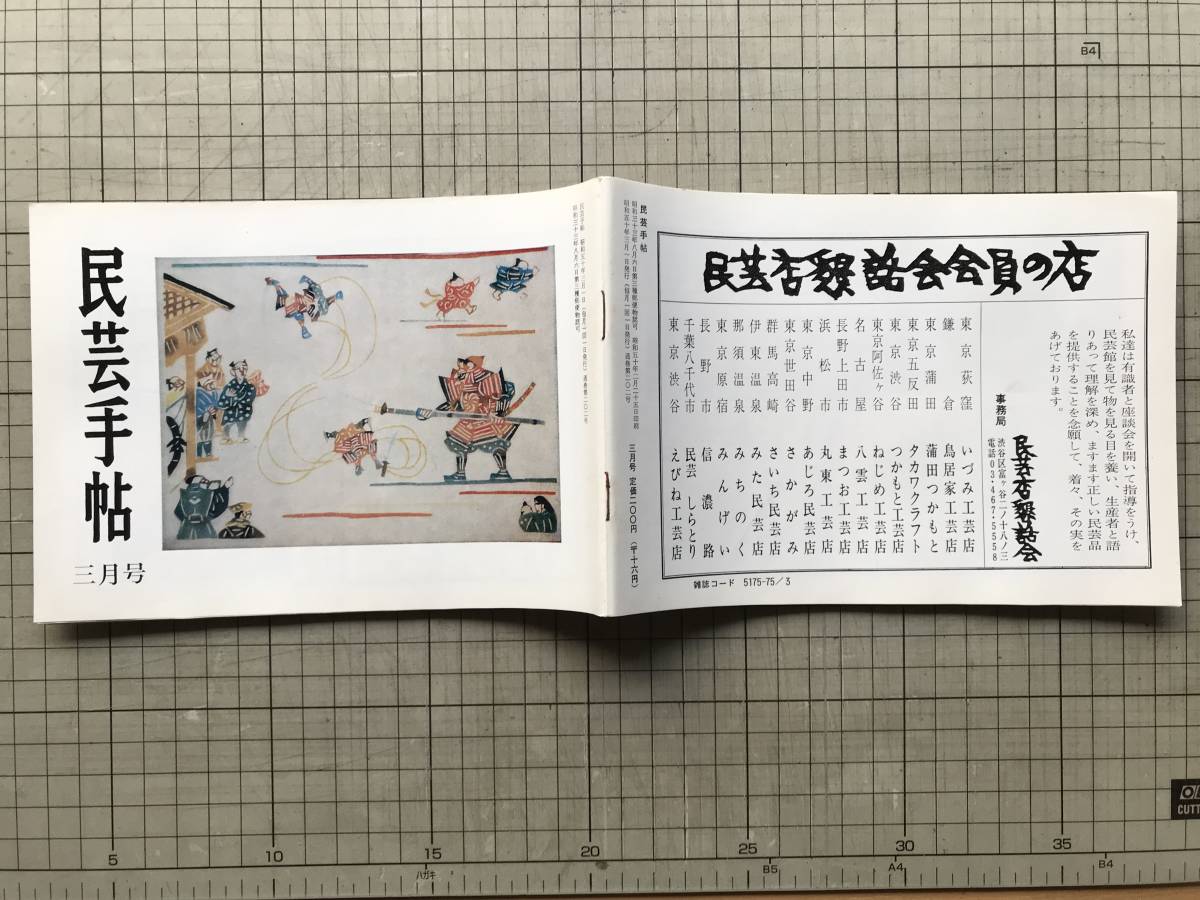 民芸手帖
三月号
民芸手帖 昭和五十年三月一日発行(毎月一回一日発行)通巻第二〇二号
昭和三十三年八月六日第三種郵便物認可
民芸手帖
昭和三十三年八月六日第三種郵便物認可 昭和五十年二月二十五日印刷
昭和五十年三月一日発行(毎月一回一日発行)通巻第二〇二号
三月号 定価二〇〇円(〒十六円)
民芸店懇話会会員の店
私達は有識者と座談会を開いて指導をうけ、
民芸館を見て物を見る目を養い、生産者と語
りあって理解を深め、ますます正しい民芸品
を提供することを念願して、着々、その実を
あげております。
民芸店懇話会
事務局 渋谷区富ヶ谷二ノ十八ノ三
電話03・467・5558
東京荻窪 いづみ工芸店
鎌倉 鳥居家工芸店
東京蒲田 蒲田つかもと
東京五反田 タカワクラフト
東京渋谷 つかもと工芸店
東京阿佐ヶ谷 ねじめ工芸店
名古屋 八雲工芸店
長野上田市 まつお工芸店
浜松市 丸東工芸店
東京中野 あじろ民芸店
東京世田谷 さかがみ
群馬高崎 さいち民芸店
伊東温泉 みた民芸店
那須温泉 みちのく
東京原宿 みんげい
長野市 信濃路
千葉八千代市 民芸 しらとり
東京渋谷 えびね工芸店
雑誌コード 5175-75/3
B4
5
10
15
20
25
30
35
ハガキ
B5
A4
B4
CUTT